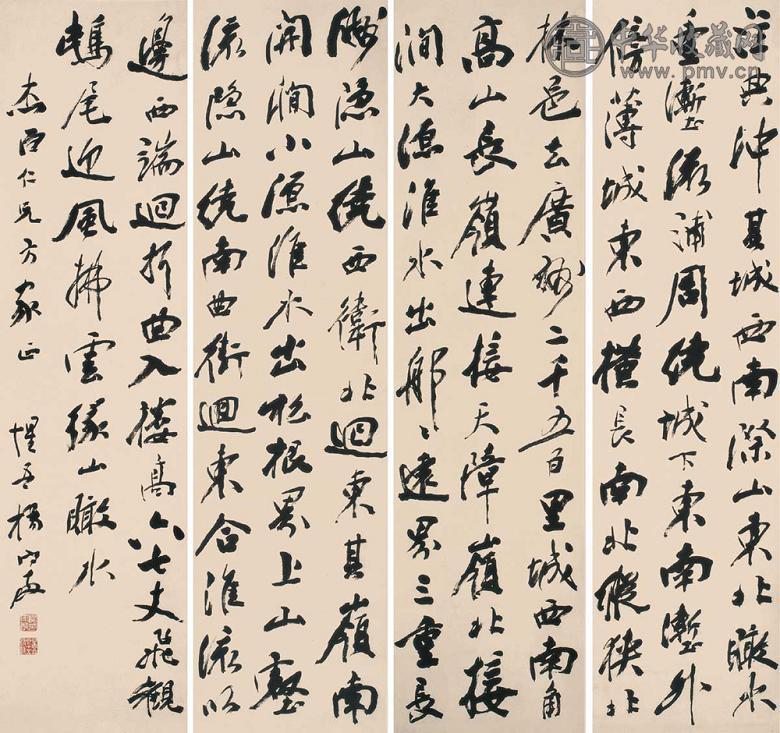 中华收藏网
www.pmv.cn
注典沖其城西南際山東北瞰水
重塹流浦周繞城下東南塹外
傍薄城東西橫長南北縱狹北
林邑去廣州二千五百里城西南角
高山長嶺連接天障嶺北接
澗大源淮水出郍〻遠界三重長
洲隱山繞西衛北迴東其嶺南
開澗小源淮水出松根界上山壑
流隱山繞南曲街迴東合淮流以
邊西端迴折曲入樓高六七丈飛觀
鴟尾迎風拂雲緣山瞰水
仁兄方家正
惺吾楊守敬